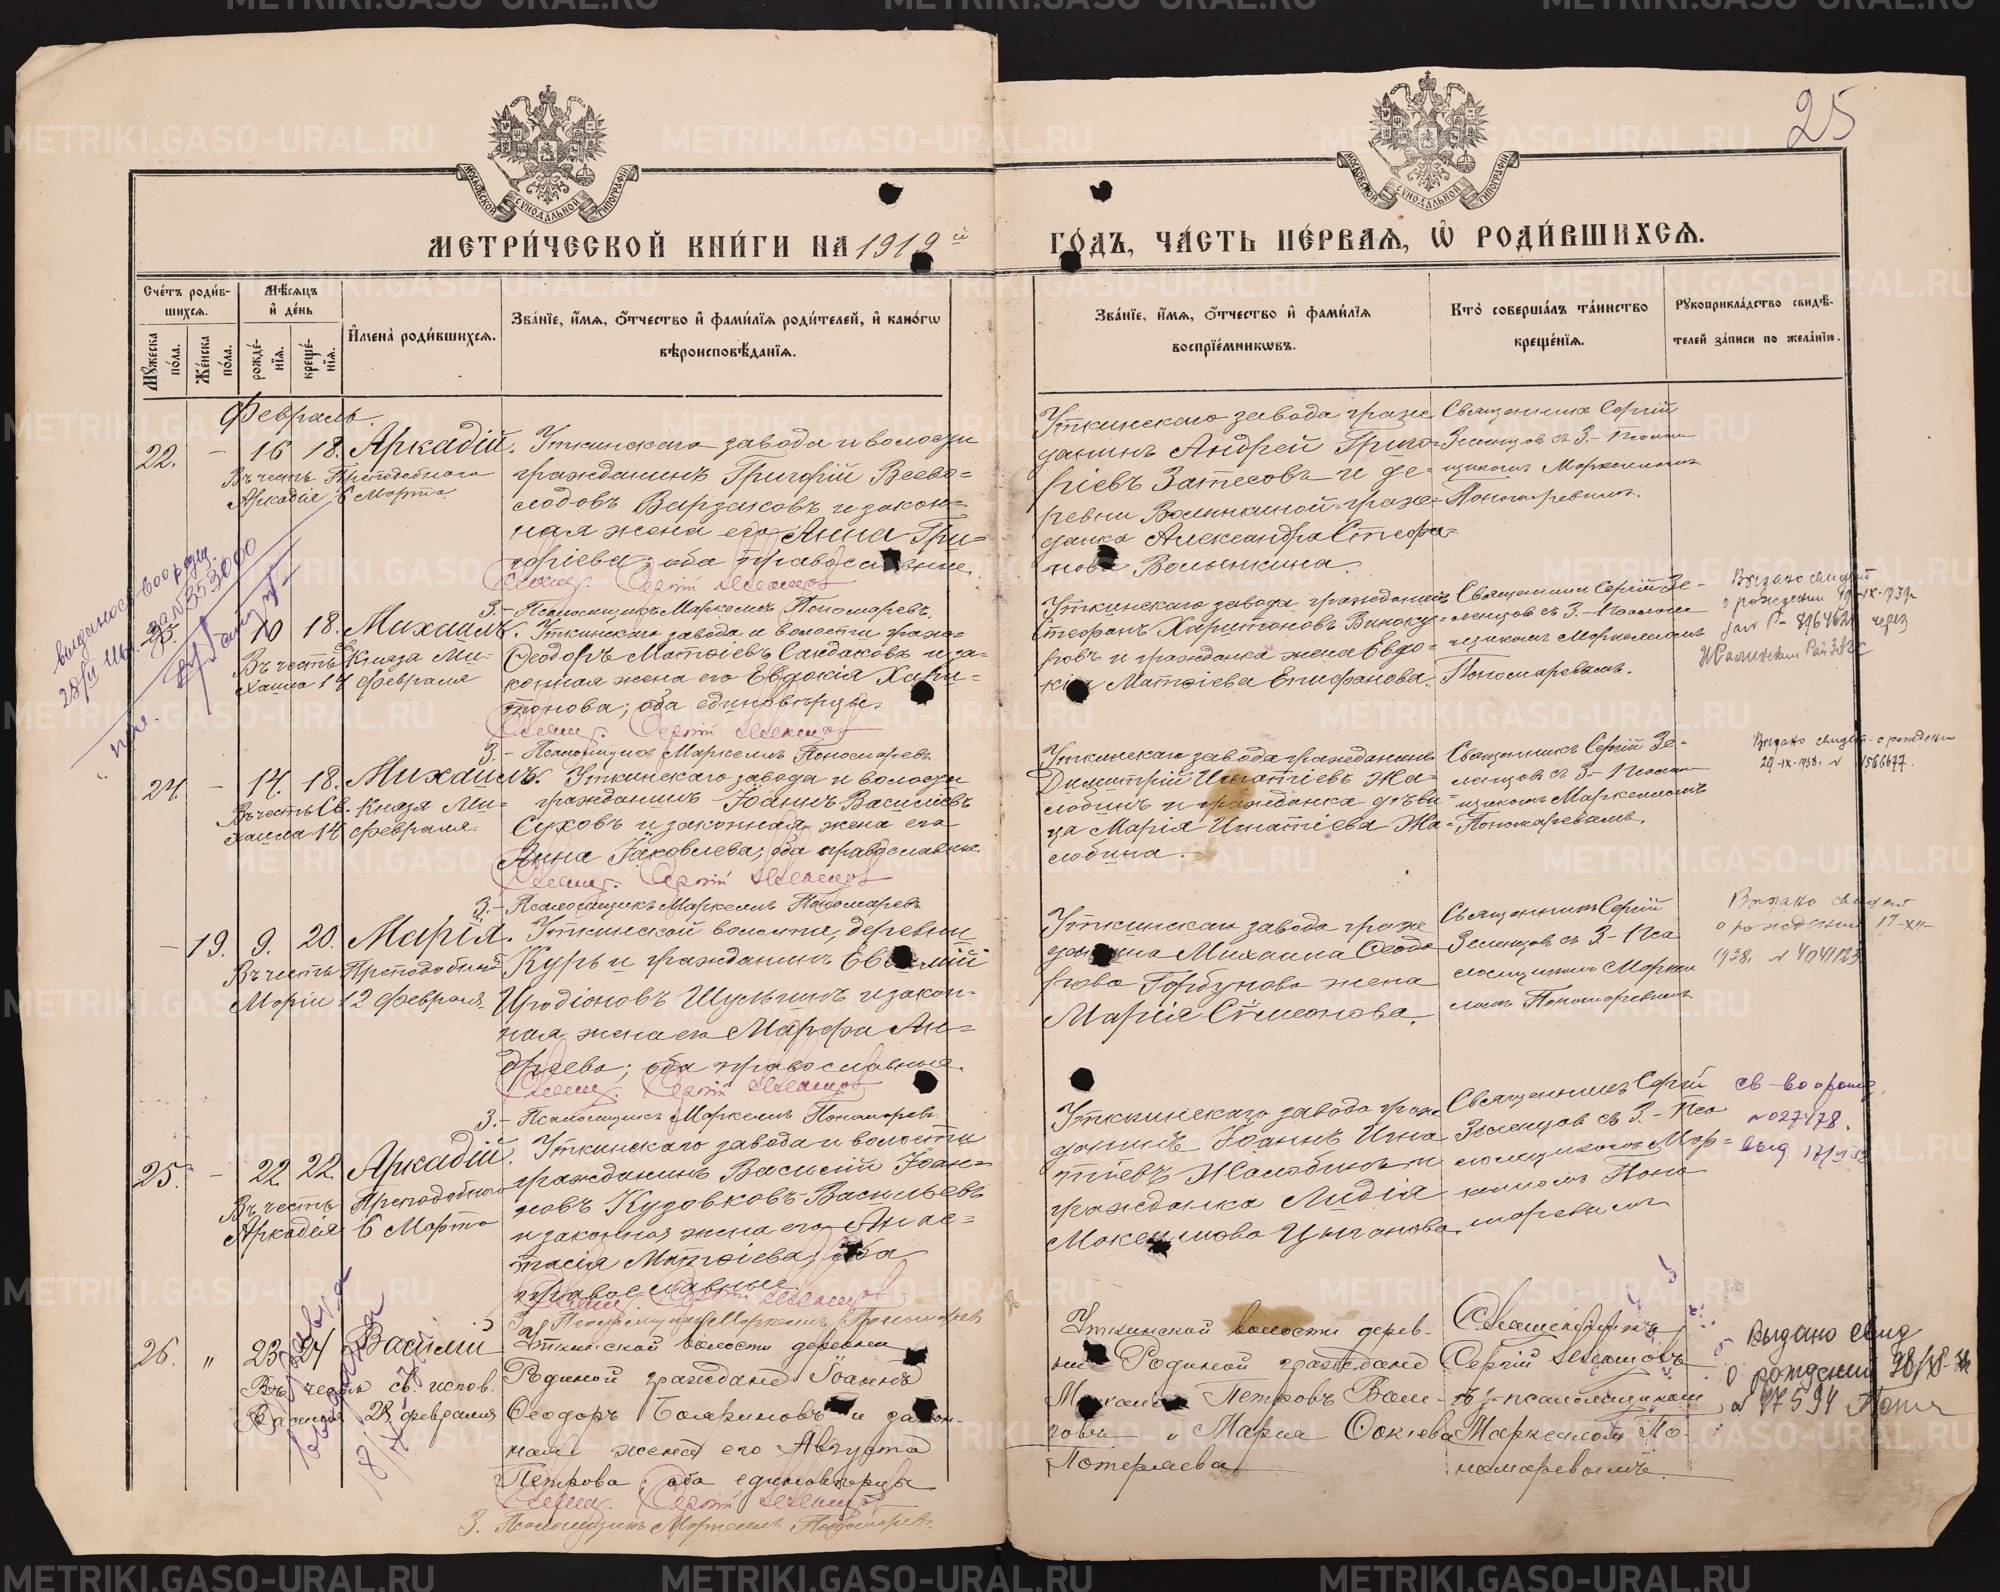 25
МОСКОВСКОЙ СѴНОДАЛЬНОЙ ТИПОГРАФІИ
МОСКОВСКОЙ СѴНОДАЛЬНОЙ ТИПОГРАФІИ
МЕТРИ́ЧЕСКОЙ КНИ́ГИ НА 1919 й
ГО́ДЪ, ЧА́СТЬ ПЕ́РВАЯ, Ѡ҆ РОДИ́ВШИХСЯ.
Сче́тъ роди́в-
шихся.
Мѣ́сяцъ
и҆ де́нь
Му́жеска по́ла.
Же́нска по́ла.
рожде́-
нїя.
креще́-
нїя.
И҆мена̀ роди́вшихся.
Зва́нїе, и҆́мя, о҆́тчество и҆ фами́лїя роди́телей, и҆ како́гѡ
вѣроисповѣ́данїя.
Зва́нїе, и҆́мя, о҆́тчество и҆ фами́лїя
воспрїе́мникѡвъ.
Кто̀ соверша́лъ та́инство
креще́нїя.
Рукоприкла́дство свидѣ́-
телей за́писи по жела́нїю.
Февраль.
22. - 16 18. Аркадій.
Въ честь Преподобнаго
Аркадія 6 Марта
Уткинскаго завода и волости
гражданинъ Григорій Всево-
лодовъ Варзаковъ и закон-
ная жена его Анна Гри-
горіева; оба православные.
Свящ. Сергій Зеленцов
З.- Псаломщикъ Маркеллъ Пономаревъ.
Уткинскаго завода граж
данинъ Андрей Григо-
ріевъ Затесовъ и де-
ревни Волынкиной граж-
данка Александра Стефа-
нова Волынкина.
Священникъ Сергій
Зеленцов съ З.- Псалом
щикомъ Маркелломъ
Пономаревымъ.
10 18. Михаилъ.
Въ честь Св. Князя Ми-
хаила 14 февраля
Уткинскаго завода и волости граж-
Ѳеодоръ Матѳіевъ Сандаковъ и за-
конная жена его Евдокія Хари-
тонова; оба единовѣрцы.
Свящ. Сергій Зеленцов
З.- Псаломщикъ Маркеллъ Пономаревъ
Уткинскаго завода гражданинъ
Стефанъ Харитоновъ Виноку-
ровъ и гражданка жена Евдо-
кія Матѳіева Епифанова.
Священникъ Сергій Зе-
ленцовъ съ З.- Псалом
щикомъ Маркелломъ
Пономаревымъ.
24. - 14. 18. Михаилъ.
Въ честь Св. Князя Ми-
хаила 14 февраля.
Уткинскаго завода и волости
гражданинъ Іоаннъ Василіевъ
Суховъ и законная жена его
Анна Іаковлева; оба православные
Свящ. Сергій Зеленцов
З.- Псаломщикъ Маркеллъ Пономаревъ
Уткинскаго завода гражданинъ
Димитрій Игнатіевъ Жа-
лобинъ и гражданка дѣви
ца Марія Игнатіева Жа-
лобина.
Священникъ Сергій Зе-
ленцов съ З.- Псалом
щикомъ Маркелломъ
Пономаревымъ.
- 19. 9. 20. Марія.
Въ честь Преподобныя
Маріи 12 февраля.
Уткинской волости, деревни
Курьи гражданинъ Евѳимій
Иродіоновъ Шульгинъ и закон-
ная жена его Марфа Ан-
дреева; оба православные.
Свящ. Сергій Зеленцов
З.- Псаломщикъ Маркеллъ Пономаревъ
Уткинскаго завода граж
данина Михаила Ѳеодо
рова Горбунова жена
Марія Симеонова.
Священникъ Сергій
Зеленцовъ съ З- Пса
ломщикомъ Маркел
ломъ Пономаревымъ
25. - 22 22 Аркадій.
Въ честь Преподобнаго
Аркадія 6 Марта
Уткинскаго завода и волости
гражданинъ Василій Іоан-
новъ Кузовковъ-Васильевъ
и законная жена его Анас-
тасія Матѳіева; оба
православные
Свящ. Сергій Зеленцов
З. Псаломщикъ Маркеллъ Пономаревъ
Уткинскаго завода граж
данинъ Іоаннъ Игна
тіевъ Жалобинъ и
гражданка Лидія
Максимова Цыганова.
Священникъ Сергій
Зеленцов съ З.- Пса
ломщикомъ Мар-
келломъ Поно
маревымъ
св-во о рожд.
№ 027478.
26. " 23 24 Василій
Въ честь св. испов.
Василія 28 февраля
Уткинской волости деревни
Родиной граждане Іоаннъ
Ѳеодоръ Бояриновъ и закон-
ная жена его Августа
Петрова, оба единовѣрцы
Свящ. Сергій Зеленцов
З. Псаломщикъ Маркеллъ Пономаревъ.
Уткинской волости дерев-
ни Родиной граждане
Петровъ
Потеряева
Священникъ
Сергій Зеленцовъ
съ з.-псаломщикомъ
Маркеломъ По-
номаревымъ.
Выдано свид
о рождении
№ 47594